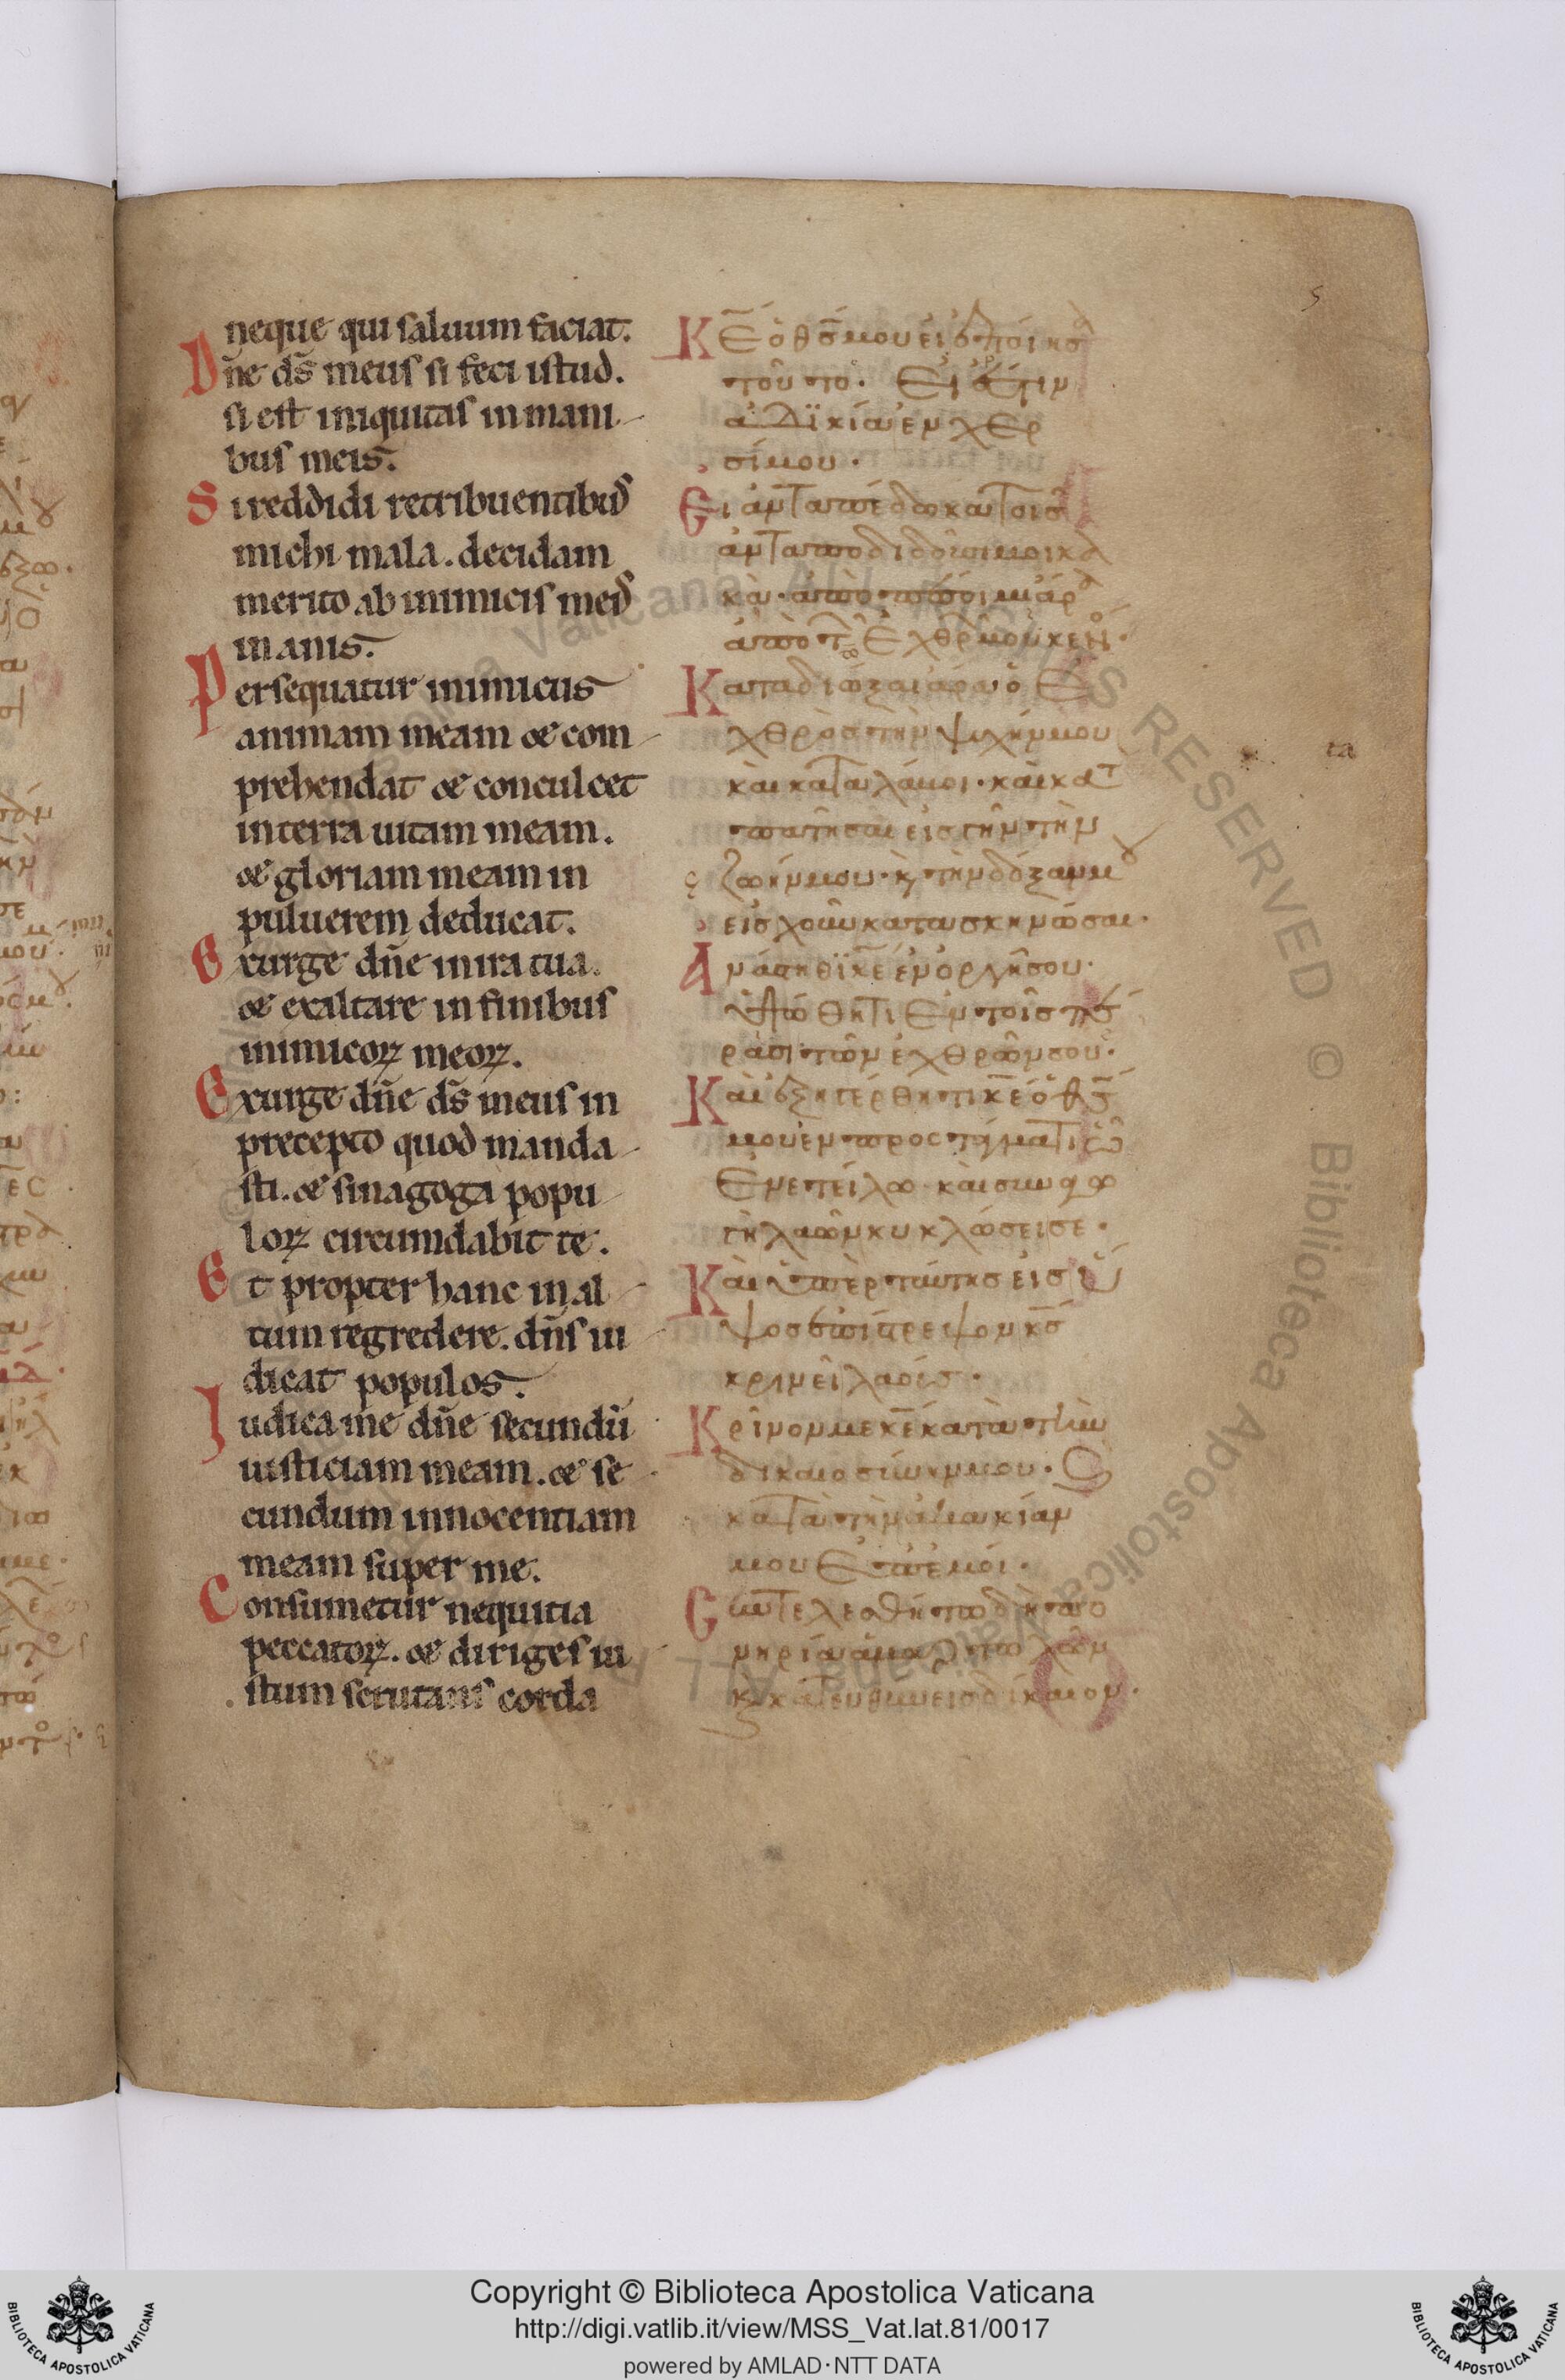 neque qui saluum faciat.
Dn̄e ds̄ meus si feci istud.
si est iniquitas in mani-
bus meis.
Si reddidi retribuentibus
michi mala. decidam
merito ab inimicis meis
inanis.
Persequatur inimicus
animam meam & com-
prehendat & conculcet
in terra uitam meam.
& gloriam meam in
puluerem deducat.
Exurge dn̄e in ira tua.
& exaltare in finibus
inimicoꝝ meoꝝ.
Exurge dn̄e ds̄ meus in
precepto quod manda-
sti. & sinagoga popu-
loꝝ circumdabit te.
Et propter hanc in al-
tum regredere. dn̄s iu-
dicat populos.
Iudica me dn̄e secundū
iusticiam meam. & se-
cundum innocentiam
meam super me.
Consumetur nequitia
peccatoꝝ. & diriges iu-
stum scrutans corda
Κε̄ ὁ θς̄ μου εἰ ἐποίησα
τοῦτο. Εἰ ἔστιν
ἀδϊκία ἐν χερ
σί μου.
Εἰ ἀνταπέδωκα τοῖς
ἀνταποδιδοῦσι μοι κα
κὰ. ἀποπέσοιμι ἄρα
ἀπὸ τῶ ἐχθρ μου κενὸ.
Καταδιώξαι ἄρα ὁ ἐ
χθρὸσ τὴν ψυχήν μου
καὶ καταλάβοι. καὶ κατ
πατῆσαι εἰς γῆν τὴν
ζωήν μου. κ τὴν δόξαν μȣ
εἰσ χοῦν κατασκηνώσαι.
Ανάστηθϊ κε̄ ἐν ὀργῆ σου.
Ὑψώθητι ἐν τοῖσ πέ
ρασι τῶν ἐχθρῶν σου.
Καὶ ἐξηγέρθητι κε̄ ὁ θς̄
μου ἐν προςτάγματι ᾧ
Ἐνετείλω καὶ συναγω
γὴ λαῶν κυκλώσει σε.
Καὶ ὑπὲρ ταύτησ εἰσ ὕ
ψοσ ἐπίστρεψον κς̄
κρινεῖ λαούσ.
Κρῖνον με κε̄ κατὰ τὴν
δικαιοσύνην μου. ϗ
κατὰ τὴν ἀκακίαν
μου ἐπ ἐμοί.
Συντελεσθήτω δὴ πο
νηρία ἁμαρτωλῶν
κ κατευθυνεῖσ δίκαιον.
5
ta
Copyright © Biblioteca Apostolica Vaticana
http://digi.vatlib.it/view/MSS_Vat.lat.81/0017
powered by AMLAD·NTT DATA
BIBLIOTECA APOSTOLICA VATICANA
BIBLIOTECA APOSTOLICA VATICANA